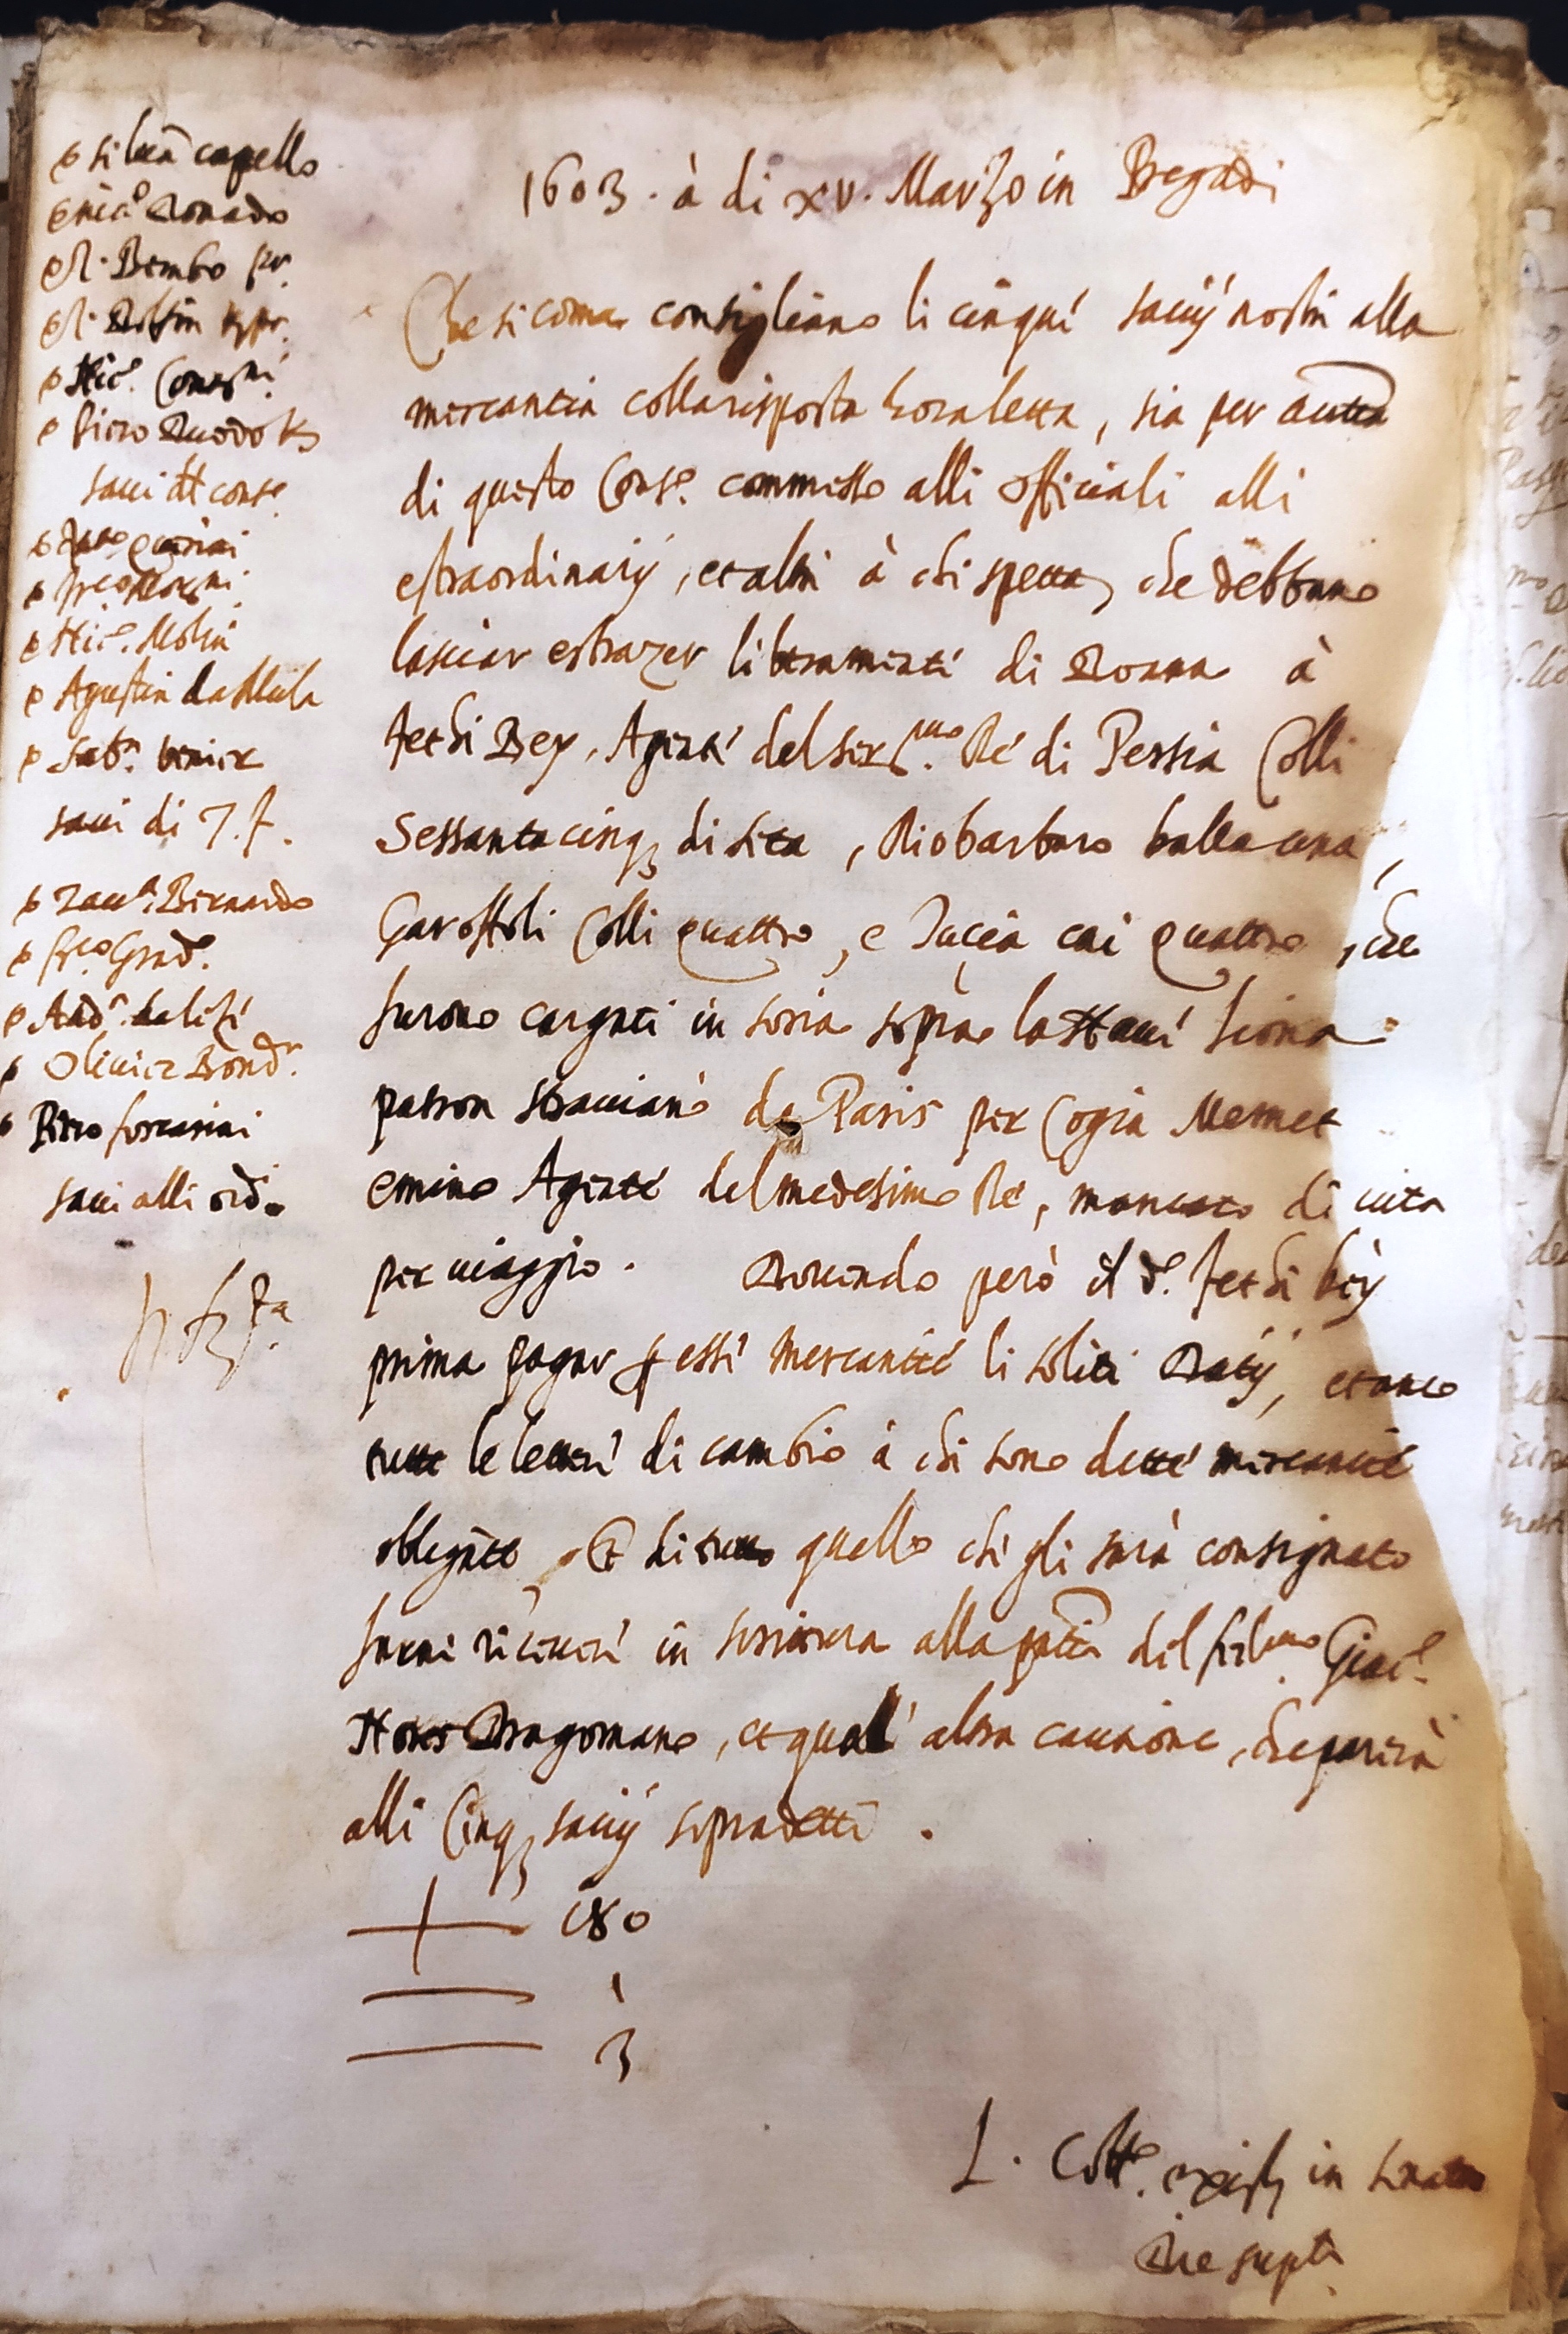 s. silvan capello
s. nic.o Donado
s. A. Bembo pr.
s. A. Dolfin K.r pr.
s. Nic.
s. Piero Duodo K.r
savi del cons.o
s. Zuane querini
s. Nic.o Molin
s. Agustin da Mula
s. Seb.n venier
savi di T. f.
s. Zacc.a Bernardo
s. fr.co Grad.o
s. And.a da lezé
s. Olivier Bond.r
s. Piero foscarini
savi alli ord.i
1603. à di xv. Marzo in Pregadi
Che si come consigliano li cinque savij nostri alla
mercantia colla risposta hora letta, sia per autta
di questo Cons.o commesso alli officiali alli
estraordinarij, et altri à chi spetta, che debbano
lasciar estrazer liberamente di Doana à
Fethi Bey, Agente del ser.mo Ré di Persia Colli
sessantacinq; di seta, Riobarbaro balla una,
Garoffoli Colli quattro, e Tucia cai quattro, che
furono cargati in soria sopra la Nave liona
patron stravian da Paris per Cogia Memet
emino Agente del medesimo Ré, mancato di vita
per viaggio. Dovendo però il d.o Fethi bey
prima pagar p essi mercantie li soliti Datij, et anco
tutte le lettere di cambio à chi sono dette mercantie
obligate, Et di tutto quello che gli sarà consignato
farne ricever in scrittura alla pntia del fid.mo Giac.o
Nores Dragomano, et qual altra cautione, che parerà
alli Cinq; savij sopradetti.
+ 180
— 1
— 3
L. Coll.o in senato
Die supta